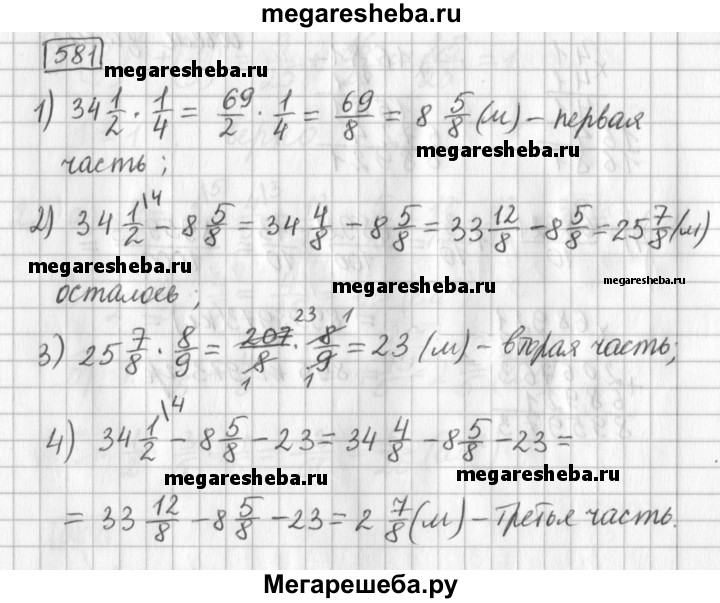 megaresheba.ru
581
megaresheba.ru
1) 34 1/2 · 1/4 = 69/2 · 1/4 = 69/8 = 8 5/8 (м) – первая
megaresheba.ru
часть;
2) 34 1/2 \4 – 8 5/8 = 34 4/8 – 8 5/8 = 33 12/8 – 8 5/8 = 25 7/8 (м)
megaresheba.ru megaresheba.ru megaresheba.ru
осталось;
3) 25 7/8 · 8/9 = 207 23/8 1 · 8 1/9 1 = 23 (м) – вторая часть;
4) 34 1/2 \4 – 8 5/8 – 23 = 34 4/8 – 8 5/8 – 23 =
megaresheba.ru megaresheba.ru
= 33 12/8 – 8 5/8 – 23 = 2 7/8 (м) – третья часть.
Мегарешеба.ру